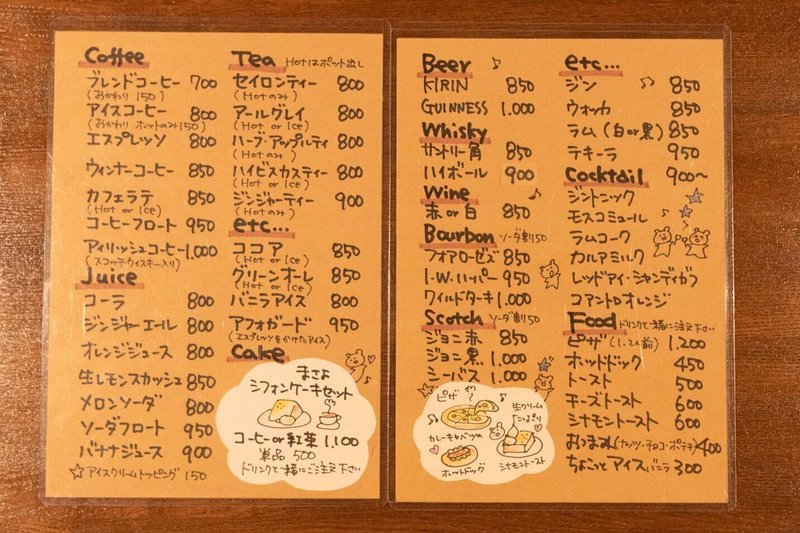 Coffee
ブレンドコーヒー 700
(おかわり 150)
アイスコーヒー 800
(おかわり ホットのみ150)
エスプレッソ 800
ウィンナーコーヒー 850
カフェラテ 850
(Hot or Ice)
コーヒーフロート 950
アイリッシュコーヒー 1.000
(スコッチウィスキー入り)
Juice
コーラ 800
ジンジャーエール 800
オレンジジュース 800
生レモンスカッシュ 850
メロンソーダ 800
ソーダフロート 950
バナナジュース 900
☆アイスクリームトッピング 150
Tea Hotはポット出し
セイロンティー 800
(Hotのみ)
アールグレイ 800
(Hot or Ice)
ハーブ・アップルティ 800
(Hotのみ)
ハイビスカスティー 800
(Hot or Ice)
ジンジャーティー 900
(Hotのみ)
etc...
ココア 850
(Hot or Ice)
グリーンオーレ 850
(Hot or Ice)
バニラアイス 800
アフォガード 950
(エスプレッソをかけたアイス)
Cake
まさよ
シフォンケーキセット
コーヒー or 紅茶 1.100
単品 500
ドリンクと一緒にご注文下さい
Beer
KIRIN 850
GUINNESS 1.000
Whisky
サントリー角 850
ハイボール 900
Wine
赤 or 白 850
Bourbon ソーダ割り50
フォアローゼズ 850
I.W.ハーパー 950
ワイルドターキ 1.000
Scotch ソーダ割り50
ジョニ赤 850
ジョニ黒 1.000
シーバス 1.000
ピザ
カレーキャベツの
ホットドッグ
生クリーム
たっぷり
シナモントースト
etc...
ジン 850
ウォッカ 850
ラム (白or黒) 850
テキーラ 950
Cocktail 900〜
ジントニック
モスコミュール
ラムコーク
カルアミルク
レッドアイ・シャンディガフ
コアントロオレンジ
Food ドリンクと一緒に注文下さい
ピザ (1〜2人前) 1.200
ホットドック 450
トースト 500
チーズトースト 600
シナモントースト 600
おつまみ(ナッツ・チョコ・ポテチ) 400
ちょこっとアイス バニラ 300